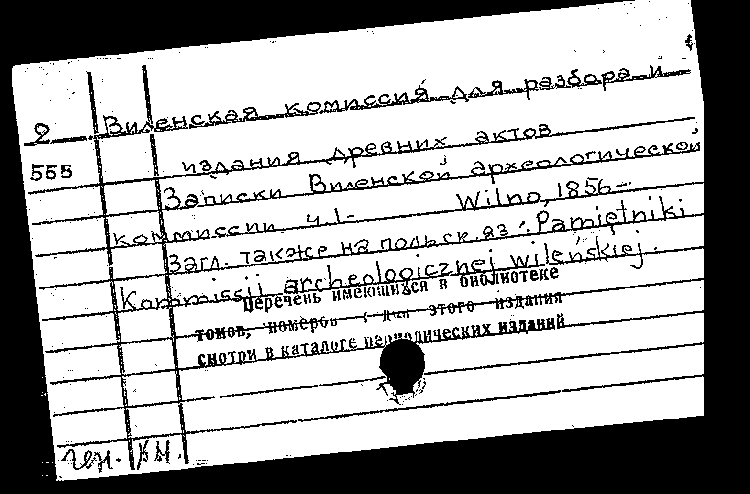 9 Виленская комиссия для разбора и
555 издания древних актов
Записки Виленской археологической
коммиссии ч.1- Wilno, 1856-
Загл. также на польск. яз: Pamiętniki
Kommissii archeologicznej wileńskiej.
Перечень имеющихся в библиотеке
томов, номеров этого издания
смотри в каталоге периодических изданий